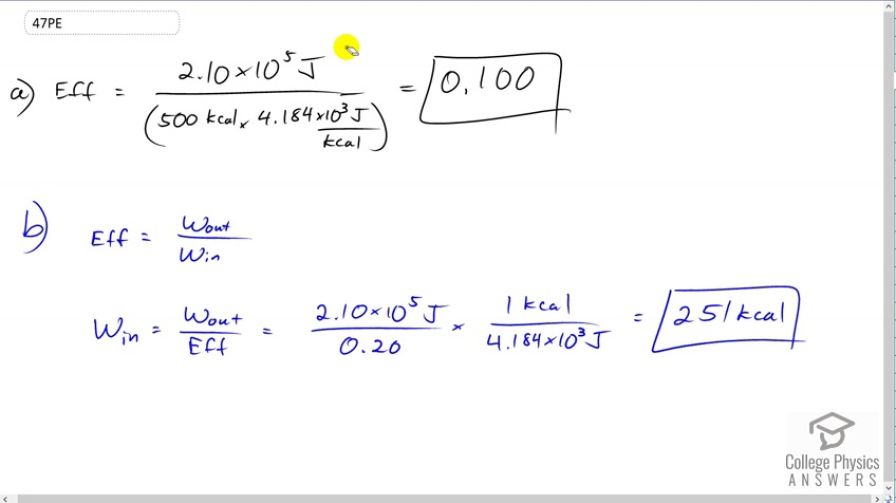 47PE
a) Eff = 2.10×10⁵ J / (500 kcal × 4.184×10³ J/kcal) = 0.100
b) Eff = Wout / Win
Win = Wout / Eff = 2.10×10⁵ J / 0.20 × 1 kcal / 4.184×10³ J = 251 kcal
College Physics
ANSWERS